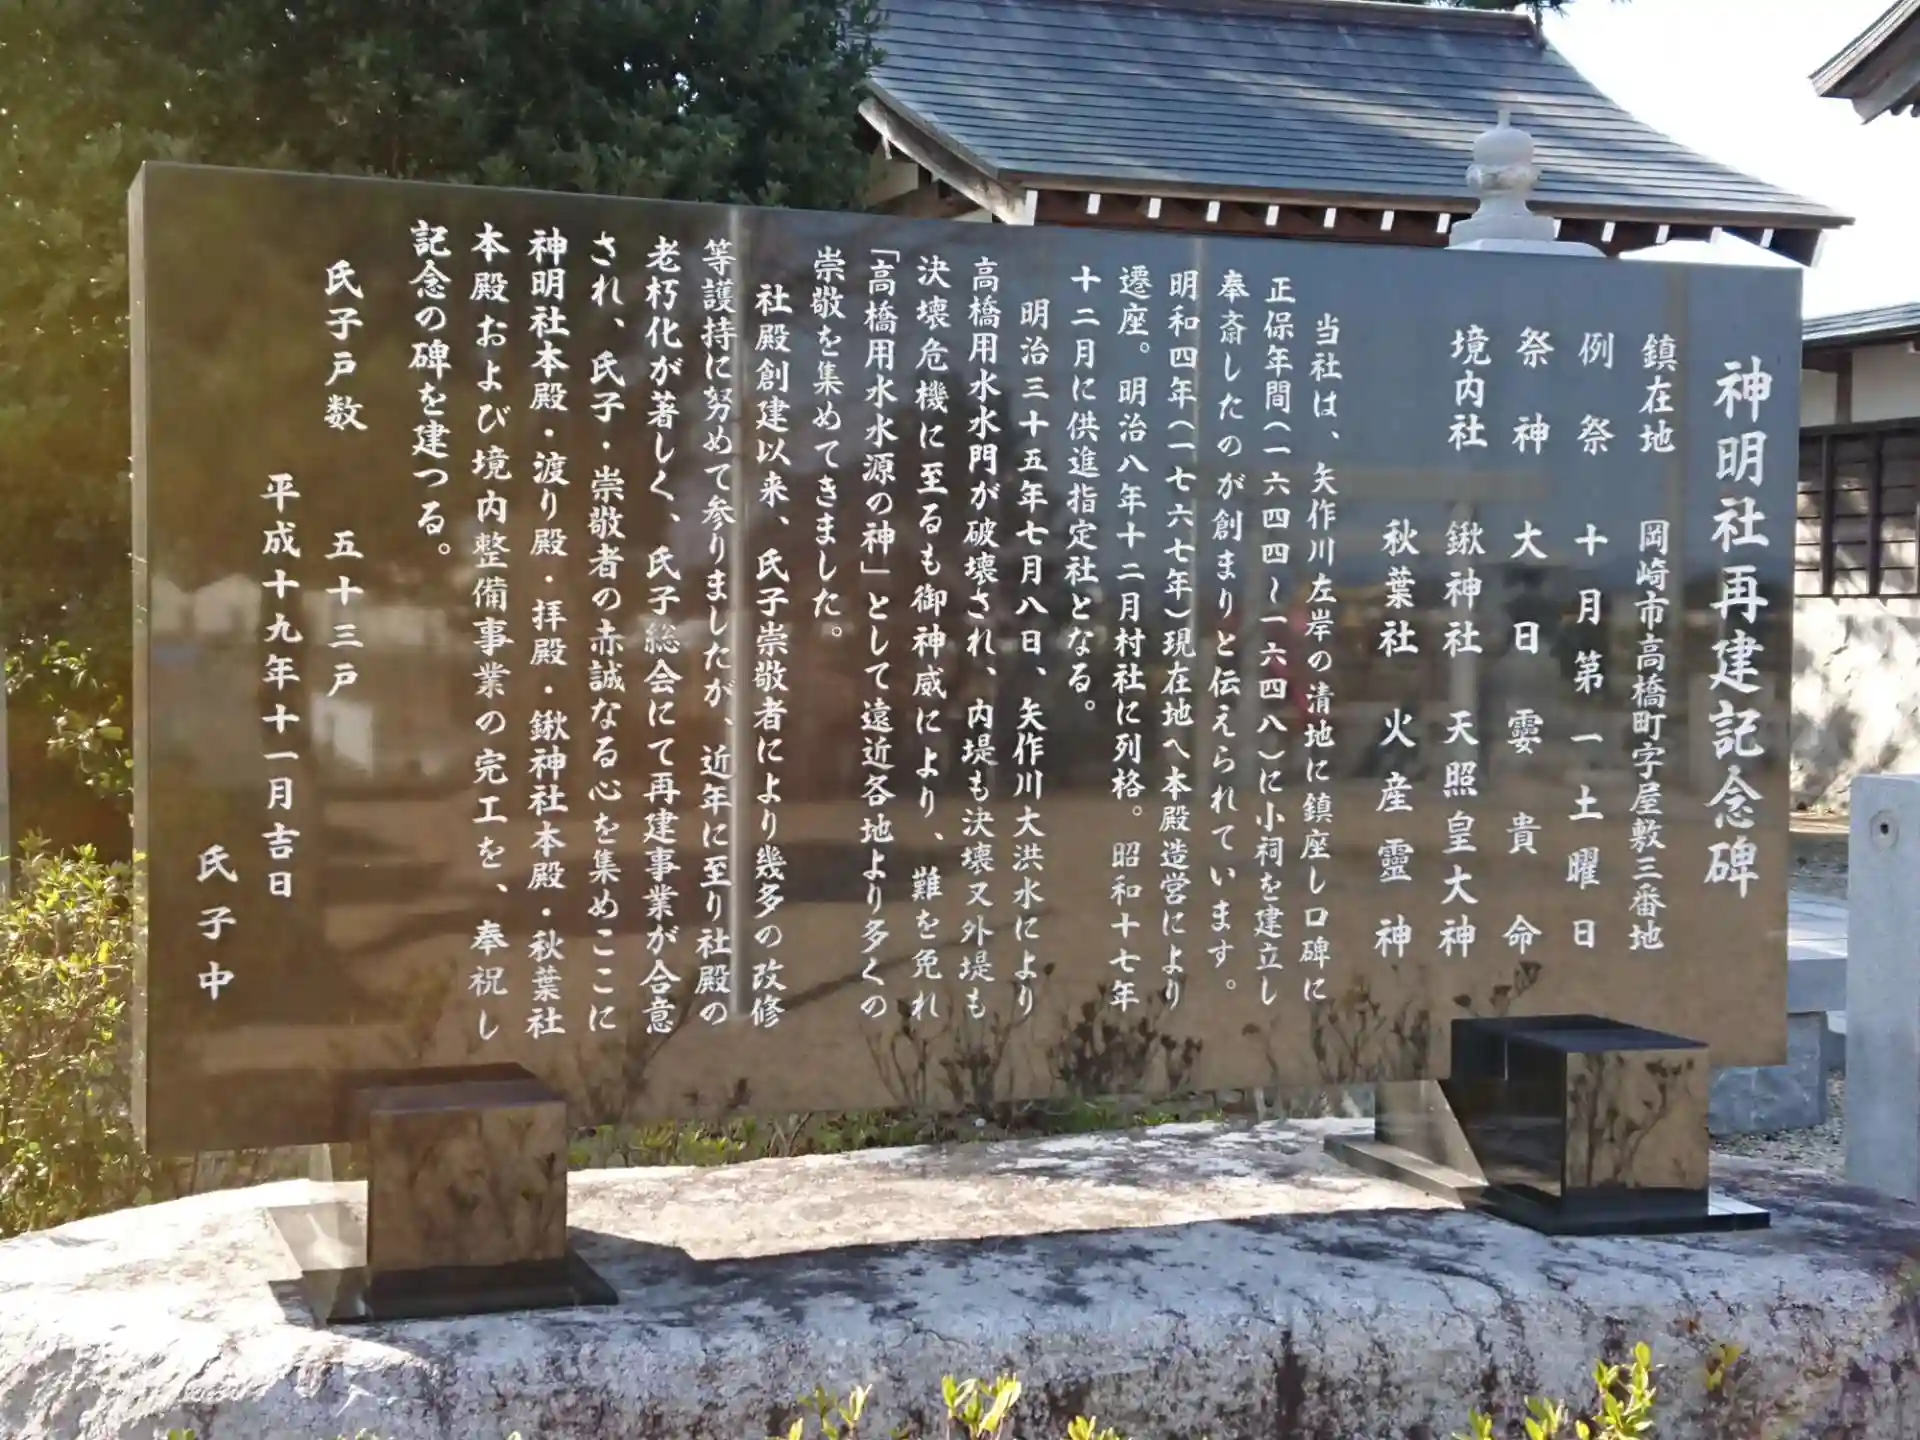 神明社再建記念碑
鎮在地 岡崎市高橋町字屋敷三番地
例祭 十月第一土曜日
祭神 大日孁貴命
境内社 鍬神社 天照皇大神
秋葉社 火産霊神
当社は、矢作川左岸の清地に鎮座し口碑に
正保年間(一六四四~一六四八)に小祠を建立し
奉斎したのが創まりと伝えられています。
明和四年(一七六七年)現在地へ本殿造営により
遷座。明治八年十二月村社に列格。昭和十七年
十二月に供進指定社となる。
明治三十五年七月八日、矢作川大洪水により
高橋用水水門が破壊され、内堤も決壊又外堤も
決壊危機に至るも御神威により、難を免れ
「高橋用水水源の神」として遠近各地より多くの
崇敬を集めてきました。
社殿創建以来、氏子崇敬者により幾多の改修
等護持に努めて参りましたが、近年に至り社殿の
老朽化が著しく、氏子総会にて再建事業が合意
され、氏子・崇敬者の赤誠なる心を集めここに
神明社本殿・渡り殿・拝殿・鍬神社本殿・秋葉社
本殿および境内整備事業の完工を、奉祝し
記念の碑を建つる。
氏子戸数 五十三戸
平成十九年十一月吉日
氏子中